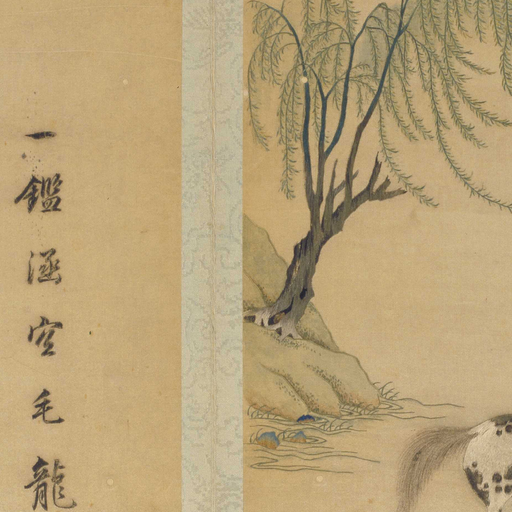 一鑑涵空毛龍